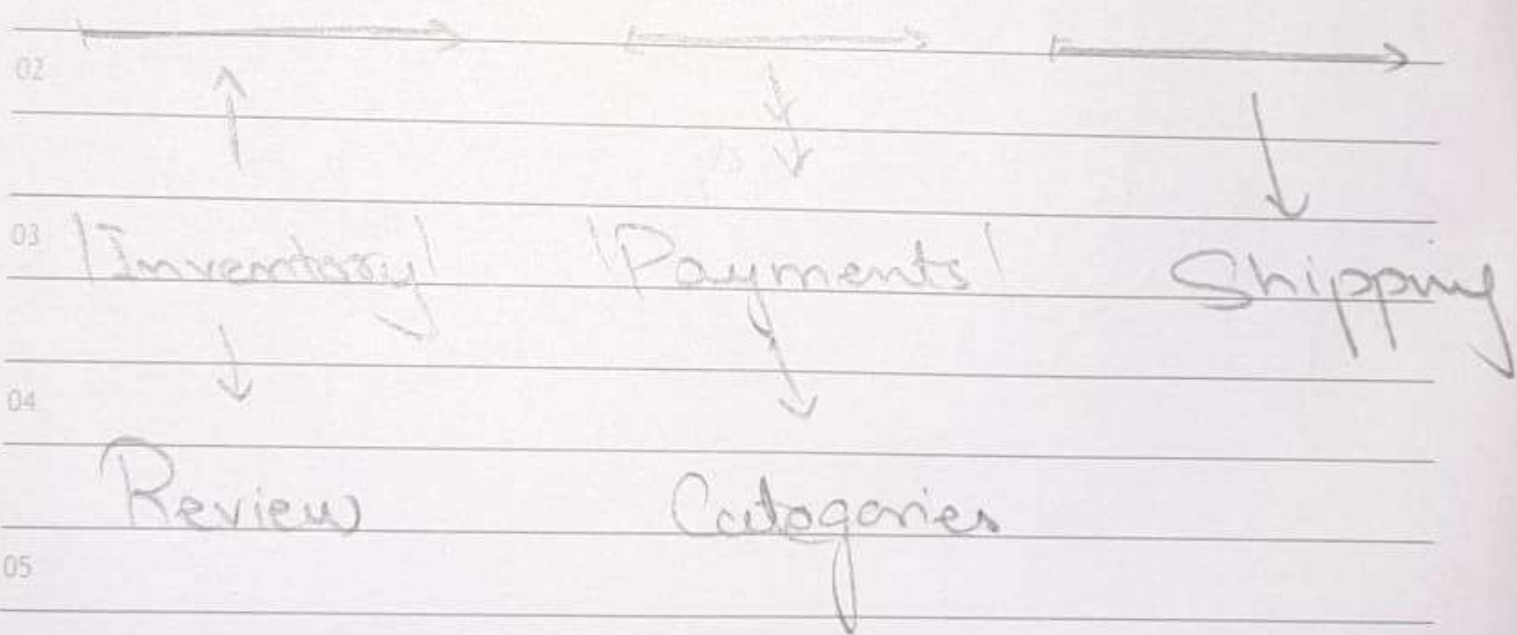 02
03 Inventory Payments Shipping
04
Review Catogories
05